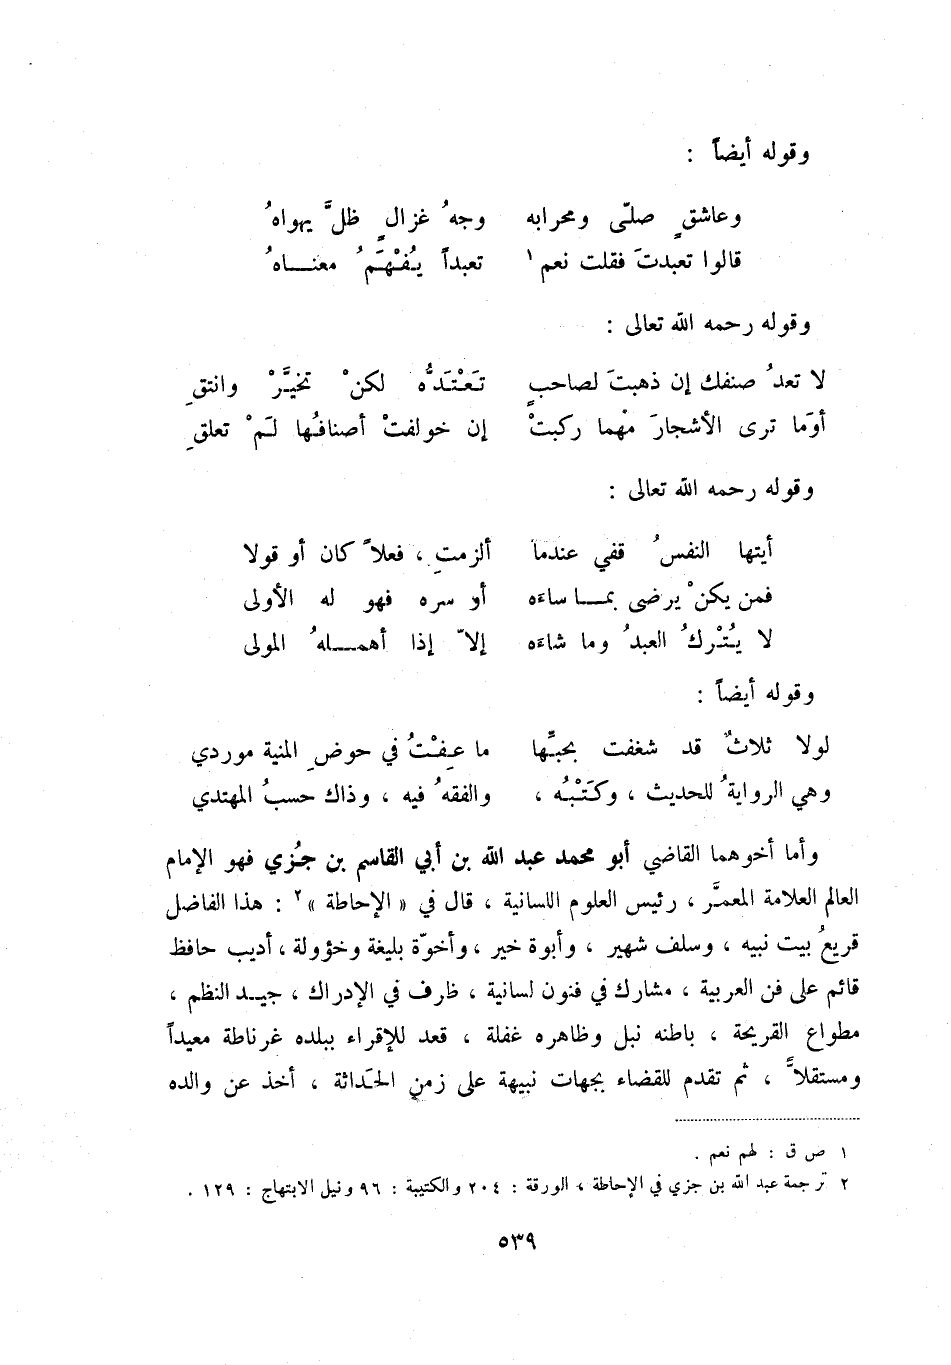 وقوله أيضاً :
وعاشقٍ صلّى ومحرابه وجهُ غزالٍ ظلَّ يهواهُ
قالوا تعبدتَ فقلت نعم ١ تعبداً يُفْهَمُ معنـــاهُ
وقوله رحمه الله تعالى :
لا تعدُ صنفك إن ذهبتَ لصاحبٍ تَعْتَدُّه لكنْ تخيَّرْ وانتقِ
أوَما ترى الأشجارَ مهْما ركبتْ إن خولفتْ أصنافُها لَمْ تعلقِ
وقوله رحمه الله تعالى :
أيتها النفسُ قفي عندما ألزمتِ ، فعلاً كان أو قولا
فمن يكنْ يرضى بمــا ساءَه أو سره فهو له الأولى
لا يُتْركُ العبدُ وما شاءَه إلاّ إذا أهمــلهُ المولى
وقوله أيضاً :
لولا ثلاثٌ قد شغفت بحبِّها ما عِفْتُ في حوضِ المنية موردي
وهي الروايةُ للحديث ، وكَتْبُه ، والفقهُ فيه ، وذاك حسبُ المهتدي
وأما أخوهما القاضي أبو محمد عبد الله بن أبي القاسم بن جُزي فهو الإمام
العالم العلامة المعمَّر ، رئيس العلوم اللسانية ، قال في « الإحاطة » ٢ : هذا الفاضل
قريعُ بيت نبيه ، وسلف شهير ، وأبوة خير ، وأخوّة بليغة وخؤولة ، أديب حافظ
قائم على فن العربية ، مشارك في فنون لسانية ، ظارف في الإدراك ، جيــد النظم ،
مطواع القريحة ، باطنه نبل وظاهره غفلة ، قعد للإقراء ببلده غرناطة معيداً
ومستقلاًّ ، ثم تقدم للقضاء بجهات نبيهة على زمنِ الحَداثة ، أخذ عن والده
١ ص ق : لهم نعم .
٢ ترجمة عبد الله بن جزي في الإحاطة ، الورقة : ٢٠٤ والكتيبة : ٩٦ ونيل الابتهاج : ١٢٩ .
٥٣٩